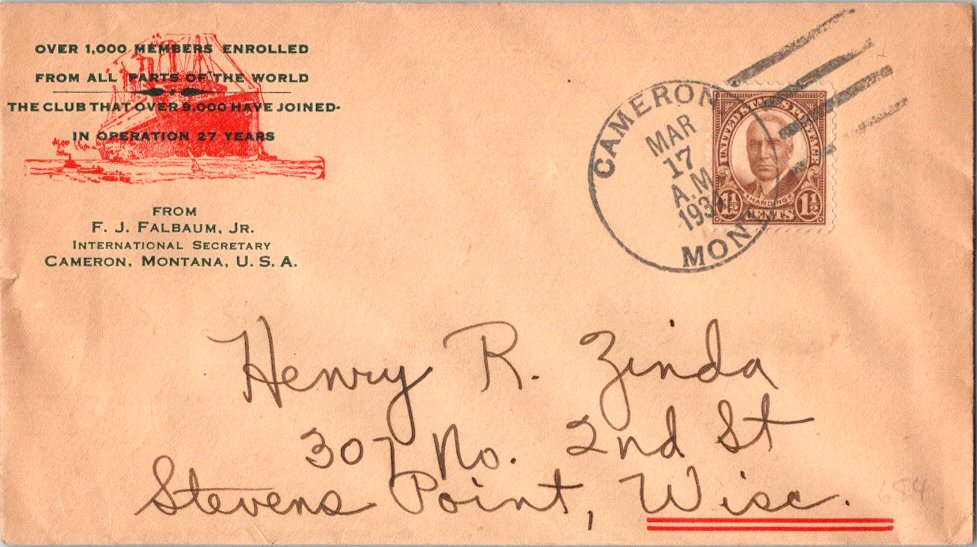 OVER 1,000 MEMBERS ENROLLED
FROM ALL PARTS OF THE WORLD
THE CLUB THAT OVER 9,000 HAVE JOINED-
IN OPERATION 27 YEARS
FROM
F. J. FALBAUM, JR.
INTERNATIONAL SECRETARY
CAMERON, MONTANA, U. S. A.
CAMERON
MAR
17
A.M.
MONT.
UNITED STATES POSTAGE
HARDING
1½ CENTS 1½
Henry R. Zinda
307 No. 2nd St
Stevens Point, Wisc.
684